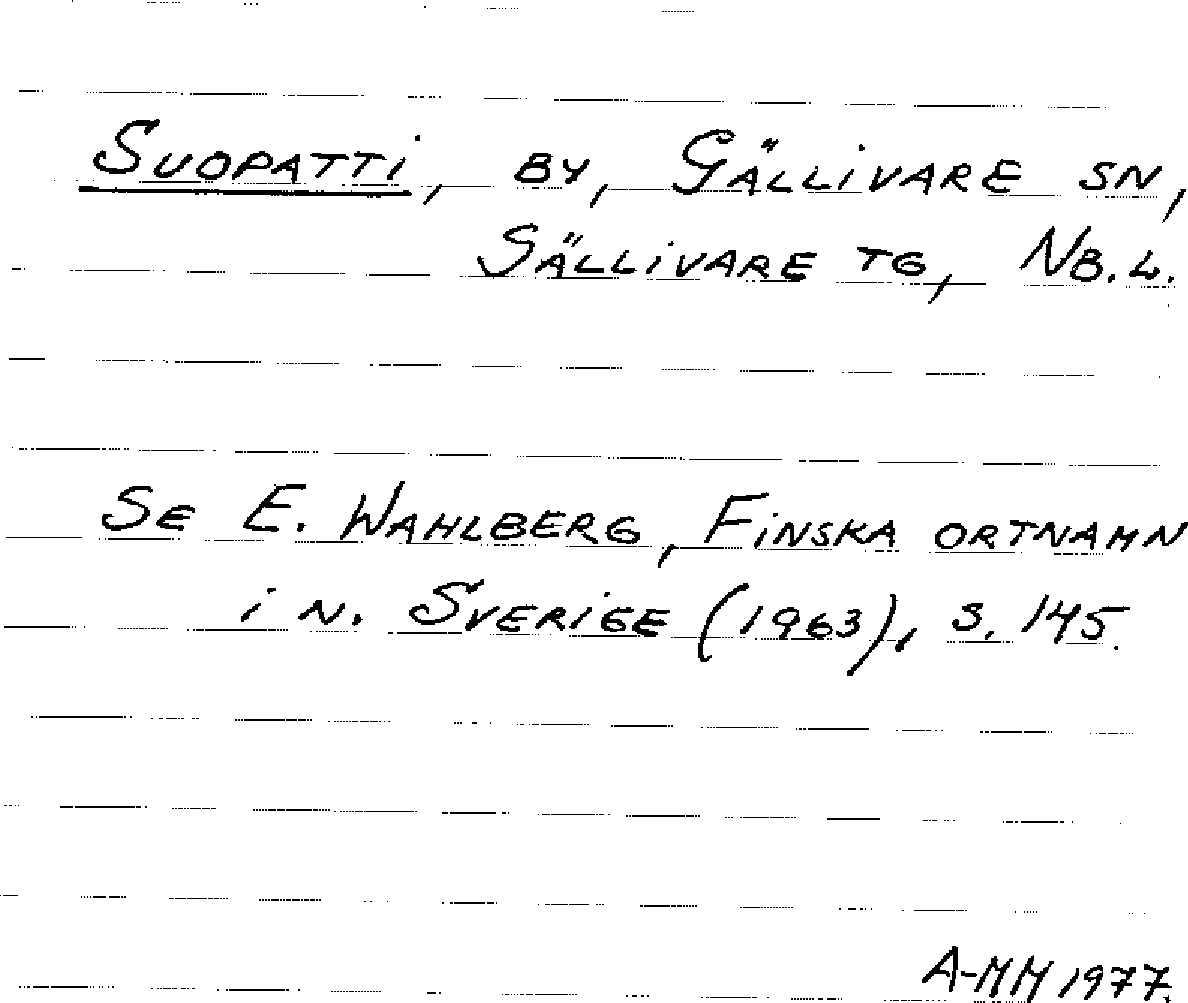 Suopatti, by, Gällivare sn,
Gällivare tg, Nb.l.
Se E. Wahlberg, Finska ortnamn
i n. Sverige (1963), s. 145.
A-MM 1977.